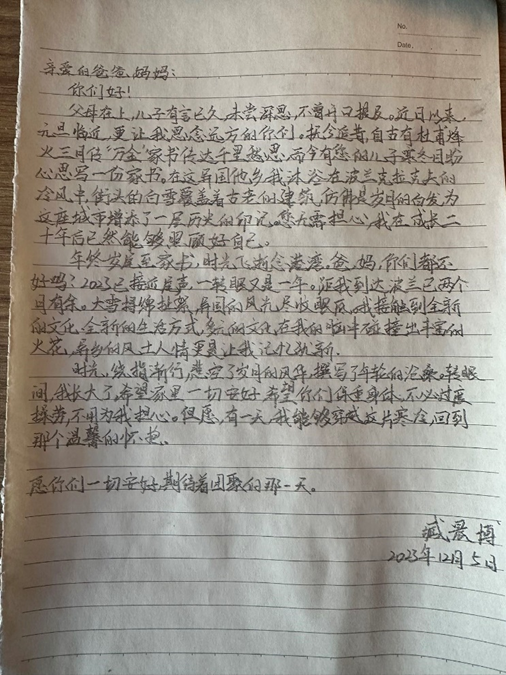 No.
Date.
亲爱的爸爸、妈妈:
你们好!
父母在上,儿子有言已久,未尝深思,不曾开口提及。近日以来,
元旦临近,更让我思念远方的你们。扶今追昔,自古有杜甫烽
火三月传“万金”家书传达千里愁思,而今有您的儿子寒冬因盼
心思写一份家书。在这异国他乡我沐浴在波兰克拉克夫的
冷风中,街头的白雪覆盖着古老的建筑,仿佛是岁月的白发为
这座城市增添了一层历史的印记。您无需担心,我在成长二
十年后已然能够照顾好自己。
年终岁尾至家书,时光飞逝念港湾。爸、妈,你们都还
好吗?2023已接近尾声,一转眼又是一年。距我到达波兰已两个
月有余。大雪得绵扯絮,异国的风光尽收眼底。我接触到全新
的文化,全新的生活方式,多元的文化在我的脑中碰撞出丰富的
火花,异乡的风土人情更是让我记忆犹新。
时光,绕指渐行,悲空了岁月的风华,撰写了年轮的沧桑。转眼
间,我长大了,希望家里一切安好,希望你们保重身体,不必过度
操劳,不用为我担心。但愿,有一天,我能够穿越这片寒冷,回到
那个温馨的怀抱。
愿你们一切安好,期待着团聚的那一天。
臧晨博
2023年12月5日